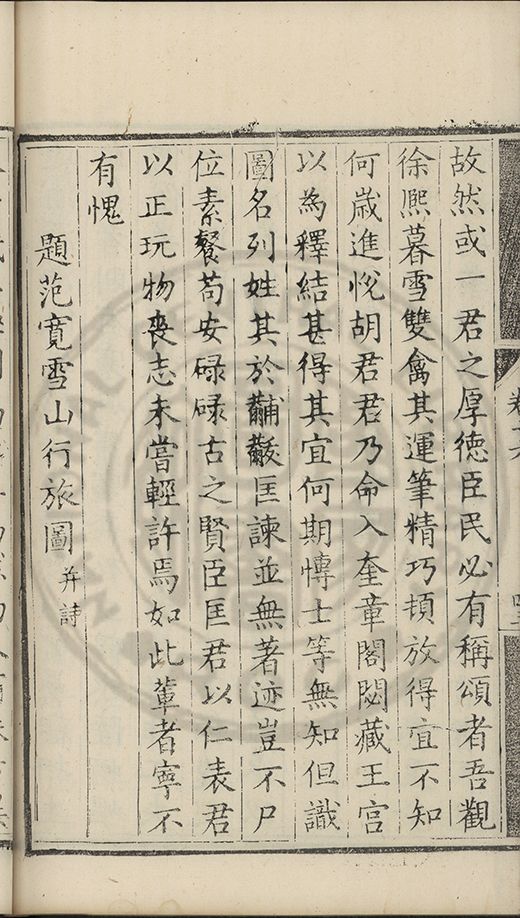 故然或一君之厚德臣民必有稱頌者吾觀
徐熈暮雪雙禽其運筆精巧頓放得宜不知
何歲進悅胡君君乃命入奎章閣閟藏王宮
以為釋結甚得其宜何期博士等無知但識
圖名列姓其於黼黻匡諫並無著迹豈不尸
位素餐苟安碌碌古之賢臣匡君以仁表君
以正玩物喪志未嘗輕許焉如此輩者寧不
有愧
題范寬雪山行旅圖 并詩